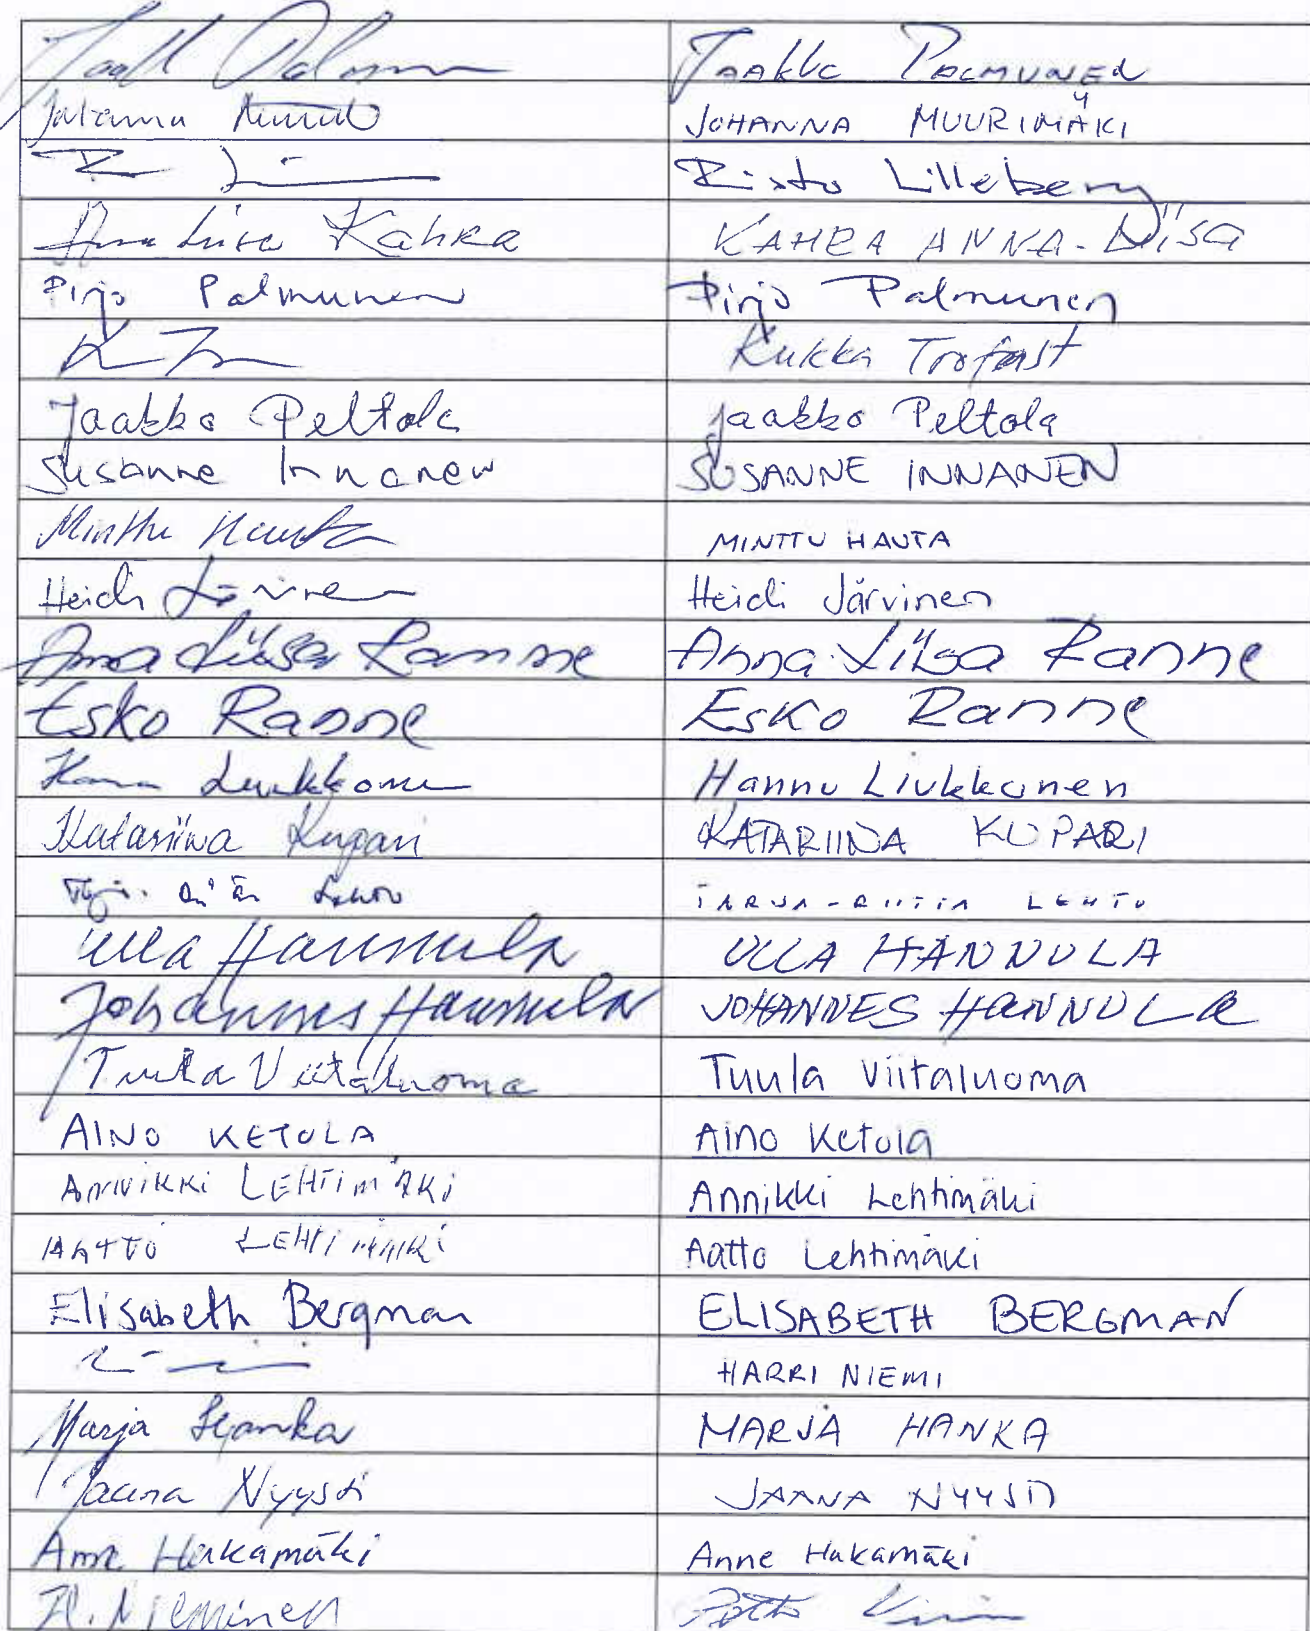 Jaakko Palmunen
Johanna JOHANNA MUURIMÄKI
Risto Lilleberg
Anna Liisa Kahra KAHRA ANNA-Liisa
Pirjo Palmunen Pirjo Palmunen
Kukka Trofast
Jaakko Peltola Jaakko Peltola
Susanne Innanen SUSANNE INNANEN
Minttu Hauta MINTTU HAUTA
Heidi Järvinen Heidi Järvinen
Anna Liisa Ranne Anna-Liisa Ranne
Esko Ranne Esko Ranne
Hannu Liukkonen Hannu Liukkonen
Katariina Kupari KATARIINA KUPARI
Lehto TARJA-RIITTA LEHTO
Ulla Hannula ULLA HANNULA
Johannes Hannula JOHANNES HANNULA
Tuula Viitaluoma Tuula Viitaluoma
AINO KETOLA Aino Ketola
ANNIKKI LEHTIMÄKI Annikki Lehtimäki
AATTO LEHTIMÄKI Aatto Lehtimäki
Elisabeth Bergman ELISABETH BERGMAN
HARRI NIEMI
Marja Hanka MARJA HANKA
Jaana Nyysti JAANA NYYSTI
Anne Hakamäki Anne Hakamäki
R. Nieminen